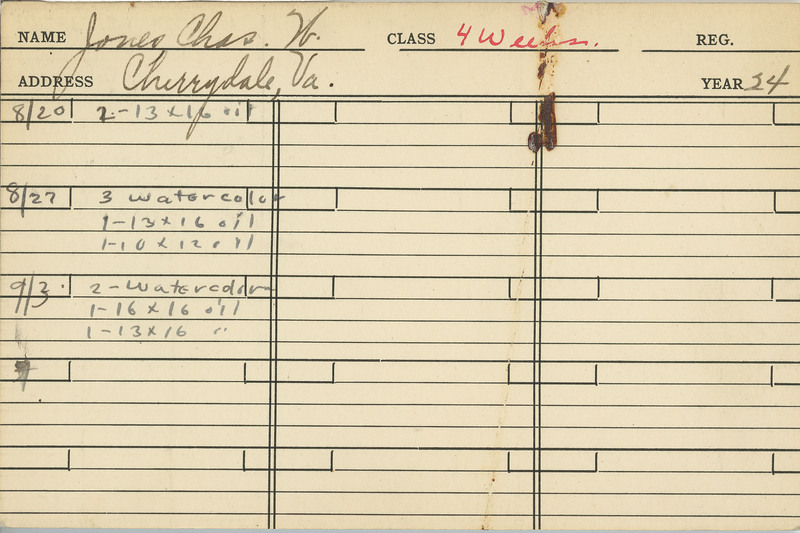 NAME Jones, Chas. W. CLASS 4 Weeks. REG.
ADDRESS Cherrydale, Va. YEAR 24
8/20 2-13x16 oil
8/27 3 watercolor
1-13x16 oil
1-10x12 oil
9/3. 2-Watercolor
1-16x16 oil
1-13x16 "